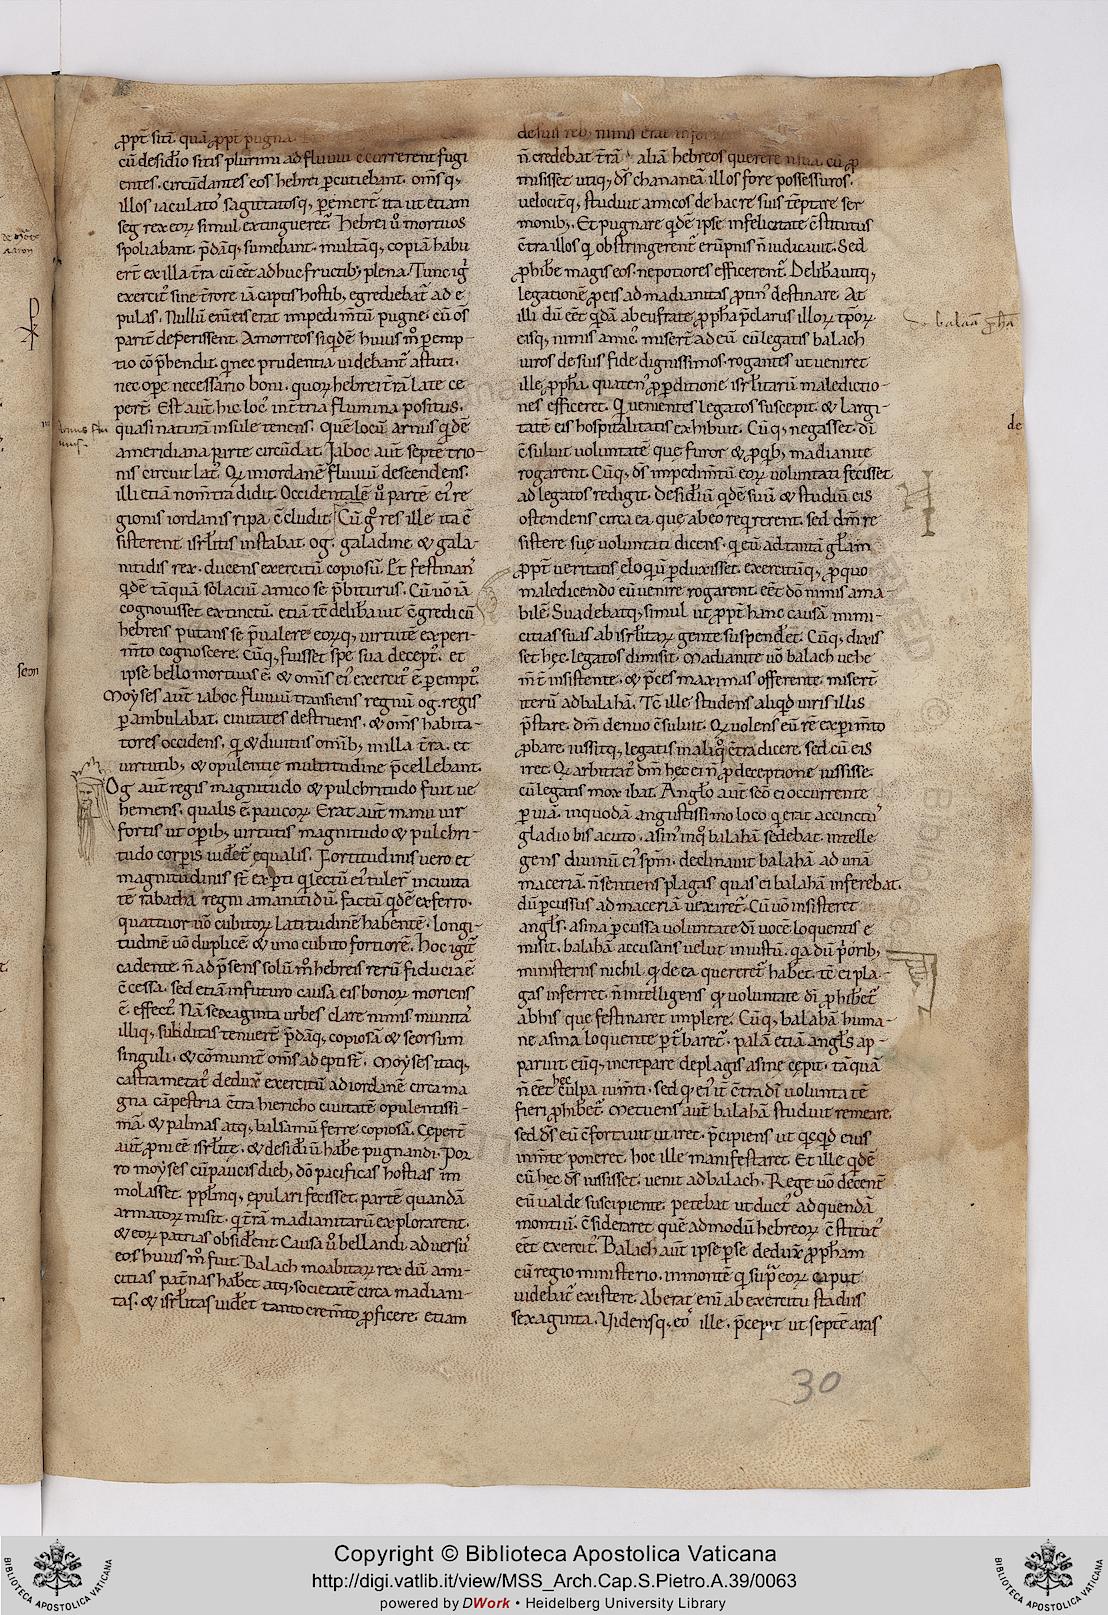 ꝓpt̃ sitĩ quã ꝓpt̃ pugna
cũ desid̃io sitis plurimi ad fluuiũ ↄcurrerent fugi
entes. circũdantes eos hebrei ꝑcutiebant. om̃sq,
illos iaculato sagittatosq, ꝑemer̃t ita ut etiam
seg rex eoꝝ simul extingueret̃. Hebrei ũ mortuos
spoliabant p̃dãq, sumebant. multãq, copiã habu
er̃t ex illa t̃ra cũ eẽt adhuc fructib, plena. Tunc ig̃
exercit᷒ sine t̃rore iã captis hostib, egrediebat̃ ad e
pulas. Nullũ eni eis erat impedim̃tũ pugne. cũ om̃s
partit̃ deperissent. Amorreos siqdẽ huius m̃ ꝑemp-
tio cõp̃hendit. q̃ nec prudentia uidebant̃ astuti.
nec ope necessario boni. quoꝝ hebrei t̃rã late ce
per̃t. Est aut̃ hic loc᷒ int̃ tria flumina positus.
quasi naturã insule tenens. Que locũ arnus q̃dẽ
a meridiana parte circũdat. Jaboc aut̃ septẽtrio-
nis circuit lat᷒. Qꝝ in iordanẽ fluuiũ descendens.
illi etiã nom̃ tradidit. Occidentalẽ ũ partẽ ei᷒ re
gionis iordanis ripa ↄcludit. Cũ g̃ res ille ita ↄ
sisterent. isrl̃itis instabat. og. galadine. & gala-
nitidis rex. ducens exercitũ copiosũ. Et festinans
q̃dẽ tãquã solaciũ amico se p̃biturus. Cũ uõ iã
cognouisset extinctũ. etiã tẽ delib̃auit ↄgredi cũ
hebreis putans se p̃ualere eoꝝq, uirtutẽ experi-
m̃to cognoscere. cũq, fuisset spe sua decept᷒. et
ipse bello mortuus ẽ. & omnis ei᷒ exercit᷒ ẽ ꝑempt᷒.
Moyses aut̃ iaboc fluuiũ transiens regnũ og. regis
ꝑambulabat. ciuitates destruens. & om̃s habita-
tores occidens. q̃ & diuitiis omĩb, in illa t̃ra. et
uirtutib, & opulentie multitudine p̃cellebant.
Og aut̃ regis magnitudo & pulchritudo fuit ue
hemens. qualis ẽ paucoꝝ. Erat aut̃ manu uir
fortis ut oꝑib, uirtutis magnitudo & pulchri-
tudo corꝑis uidet̃ equalis. Fortitudinis uero et
magnitudinis st̃ exꝑti q̃ lectũ ei᷒ tuler̃ in ciuita
tẽ rabatha regni amanitidũ. factũ q̃dẽ ex ferro.
quattuor uõ cubitoꝝ latitudinẽ habentẽ. longi-
tudinẽ uõ duplicẽ. & uno cubito fortiorẽ. Hoc igit̃
cadente. ñ ad p̃sens solũm̃ hebreis rerũ fiducia ẽ
ↄcessa. sed etiã in futuro causa eis bonoꝝ moriens
ẽ effect᷒. Nã sexaginta urbes clare nimis munitas
illiq, subditas tenuer̃t p̃dãq, copiosã & seorsum
singuli. & cõmunit̃ om̃s adepti st̃. Moyses itaq,
castrametat᷒ deduxit exercitũ ad iordanẽ circa ma
gna cãpestria ↄtra hiericho ciuitatẽ opulentissi-
mã. & palmas atq, balsamũ ferre copiosã. Ceper̃t
aut̃ ꝓni eẽ isrl̃ite. & desid̃iũ habe pugnandi. Por
ro moyses cũ paucis dieb, dõ pacificas hostias im
molasset. ppl̃mq, epulari fecisset. partẽ quandã
armatoꝝ misit. q̃ t̃rã madianitarũ explorarent.
& eoꝝ patrias obsid̃ent. Causa ũ bellandi adversũ
eos huius m̃ fuit. Balach moabitaꝝ rex dũ ami-
citias pat̃nas hab̃et atq, societatẽ circa madiani-
tas. & isrl̃itas uid̃et tanto crem̃to ꝓficere. etiam
de suis reb, nimis erat
ñ credebat t̃rã aliã hebreos querere cũ ꝓ
misisset utiq, ds̃ chananeã illos fore possessuros.
velocit̃q, studuit amicos de hac re suis tẽptare ser
monib,. Et pugnare q̃dẽ ipse infelicitate ↄstitutus
ↄtra illos q̃ obstringerent̃ erũpnis ñ iudicauit. Sed
ꝓhibe magis eos. ne potiores efficerent̃. Delib̃auitq,
legationẽ ꝓ eis ad madianitas ꝓtin᷒ destinare. At
illi dũ eẽt q̃dã ab eufrate ꝓpha p̃clarus illoꝝ tp̃oꝝ
eisq, nimis amic᷒. miser̃t ad eũ cũ legatis balach
uiros de suis fide dignissimos. rogantes ut ueniret
ille ꝓpha. quaten᷒ ꝓ ꝑditione isrl̃itarũ maledictio-
nes efficeret. Q̃ uenientes legatos suscepit. & largi-
tatẽ eis hospitalitatis exhibuit. Cũq, negasset. dĩ
ↄsuluit uoluntatẽ que furor & ꝓ quib, madianite
rogarent. Cũq, ds̃ impedim̃tũ eoꝝ uoluntati fecisset
ad legatos redigit. desid̃iũ q̃dẽ suũ & studiũ eis
ostendens circa ea que ab eo reqrerent. sed dm̃ re
sistere sue uoluntati dicens. q̃ eũ ad tantã gl̃am
ꝓpt̃ ueritatis eloquiũ ꝑduxisset. exercitũq, ꝓ quo
maledicendo eũ uenire rogarent. eẽt dõ nimis ama-
bilẽ. Suadebatq, simul ut ꝓpt̃ hanc causã inimi-
citias suas ab isrl̃itaꝝ gente suspend̃et. Cũq, dixis
set hec. legatos dimisit. Madianite uõ balach uehe
m̃t̃ insistente. & p̃ces maximas offerente. miser̃t
iterũ ad balahã. Tẽ ille studens aliqd uiris illis
p̃stare. dm̃ denuo ↄsuluit. Qꝝ uolens eũ re exꝑim̃to
ꝓbare. iussitq, legatis in aliq̃ ↄtradicere. sed cũ eis
iret. Qꝝ arbitrat᷒ dm̃ hec ei ñ ꝓ deceptione iussisse.
cũ legatis mox ibat. Anglo aut̃ sc̃o ei occurrente
ꝑ uiã. in quodã angustissimo loco q̃ erat accinct᷒
gladio bis acuto. asin᷒ in q̃ balahã sedebat. intelle
gens diuinũ ei᷒ spm̃. declinauit balahã ad unã
maceriã. ñ sentiens plagas quas ei balahã inferebat.
dũ ꝑcussus ad maceriã uexaret̃. Cũ uõ insisteret
angl̃s. asina ꝑcussa uoluntate dĩ uocẽ loquentis e
misit. balahã accusans uelut iniustũ. q̃a dũ p̃orib,
ministeriis nichil q̃ de ea quereret̃ hab̃et. tẽ ei pla-
gas inferret. ñ intelligens q̃ uoluntate dĩ ꝓhibet̃
ab his que festinaret implere. Cũq, balahã huma-
ne asina loquente ꝑt᷒baret̃. palã etiã angl̃s ap-
paruit eũq, increpare de plagis asine cepit. tãquã
ñ eẽt hec culpa ium̃ti. sed q̃ ei᷒ it̃ ↄtra dĩ uoluntatẽ
fieri ꝓhibet̃. Metuens aut̃ balahã studuit remeare.
sed ds̃ eũ ↄfortauit ut iret. p̃cipiens ut qcqd eius
in m̃te poneret. hoc ille manifestaret. Et ille q̃dẽ
cũ hec ds̃ iussisset. uenit ad balach. Rege uõ decent̃
eũ ualde suscipiente. petebat ut duct᷒ ad quendã
montiũ. ↄsideraret quẽadmodũ hebreoꝝ ↄstitut᷒
eẽt exercit᷒. Balach aut̃ ipse ꝑ se deduxit ꝓpham
cũ regio ministerio. in montẽ q̃ supra eoꝝ caput
uidebat̃ existere. Aberat eni ab exercitu stadiis
sexaginta. Vidensq, eos ille. p̃cepit ut septẽ aras
balaã ꝓpha
arnus flu
uius
seon
de
30
Copyright © Biblioteca Apostolica Vaticana
http://digi.vatlib.it/view/MSS_Arch.Cap.S.Pietro.A.39/0063
powered by DWork • Heidelberg University Library
BIBLIOTECA APOSTOLICA VATICANA
BIBLIOTECA APOSTOLICA VATICANA